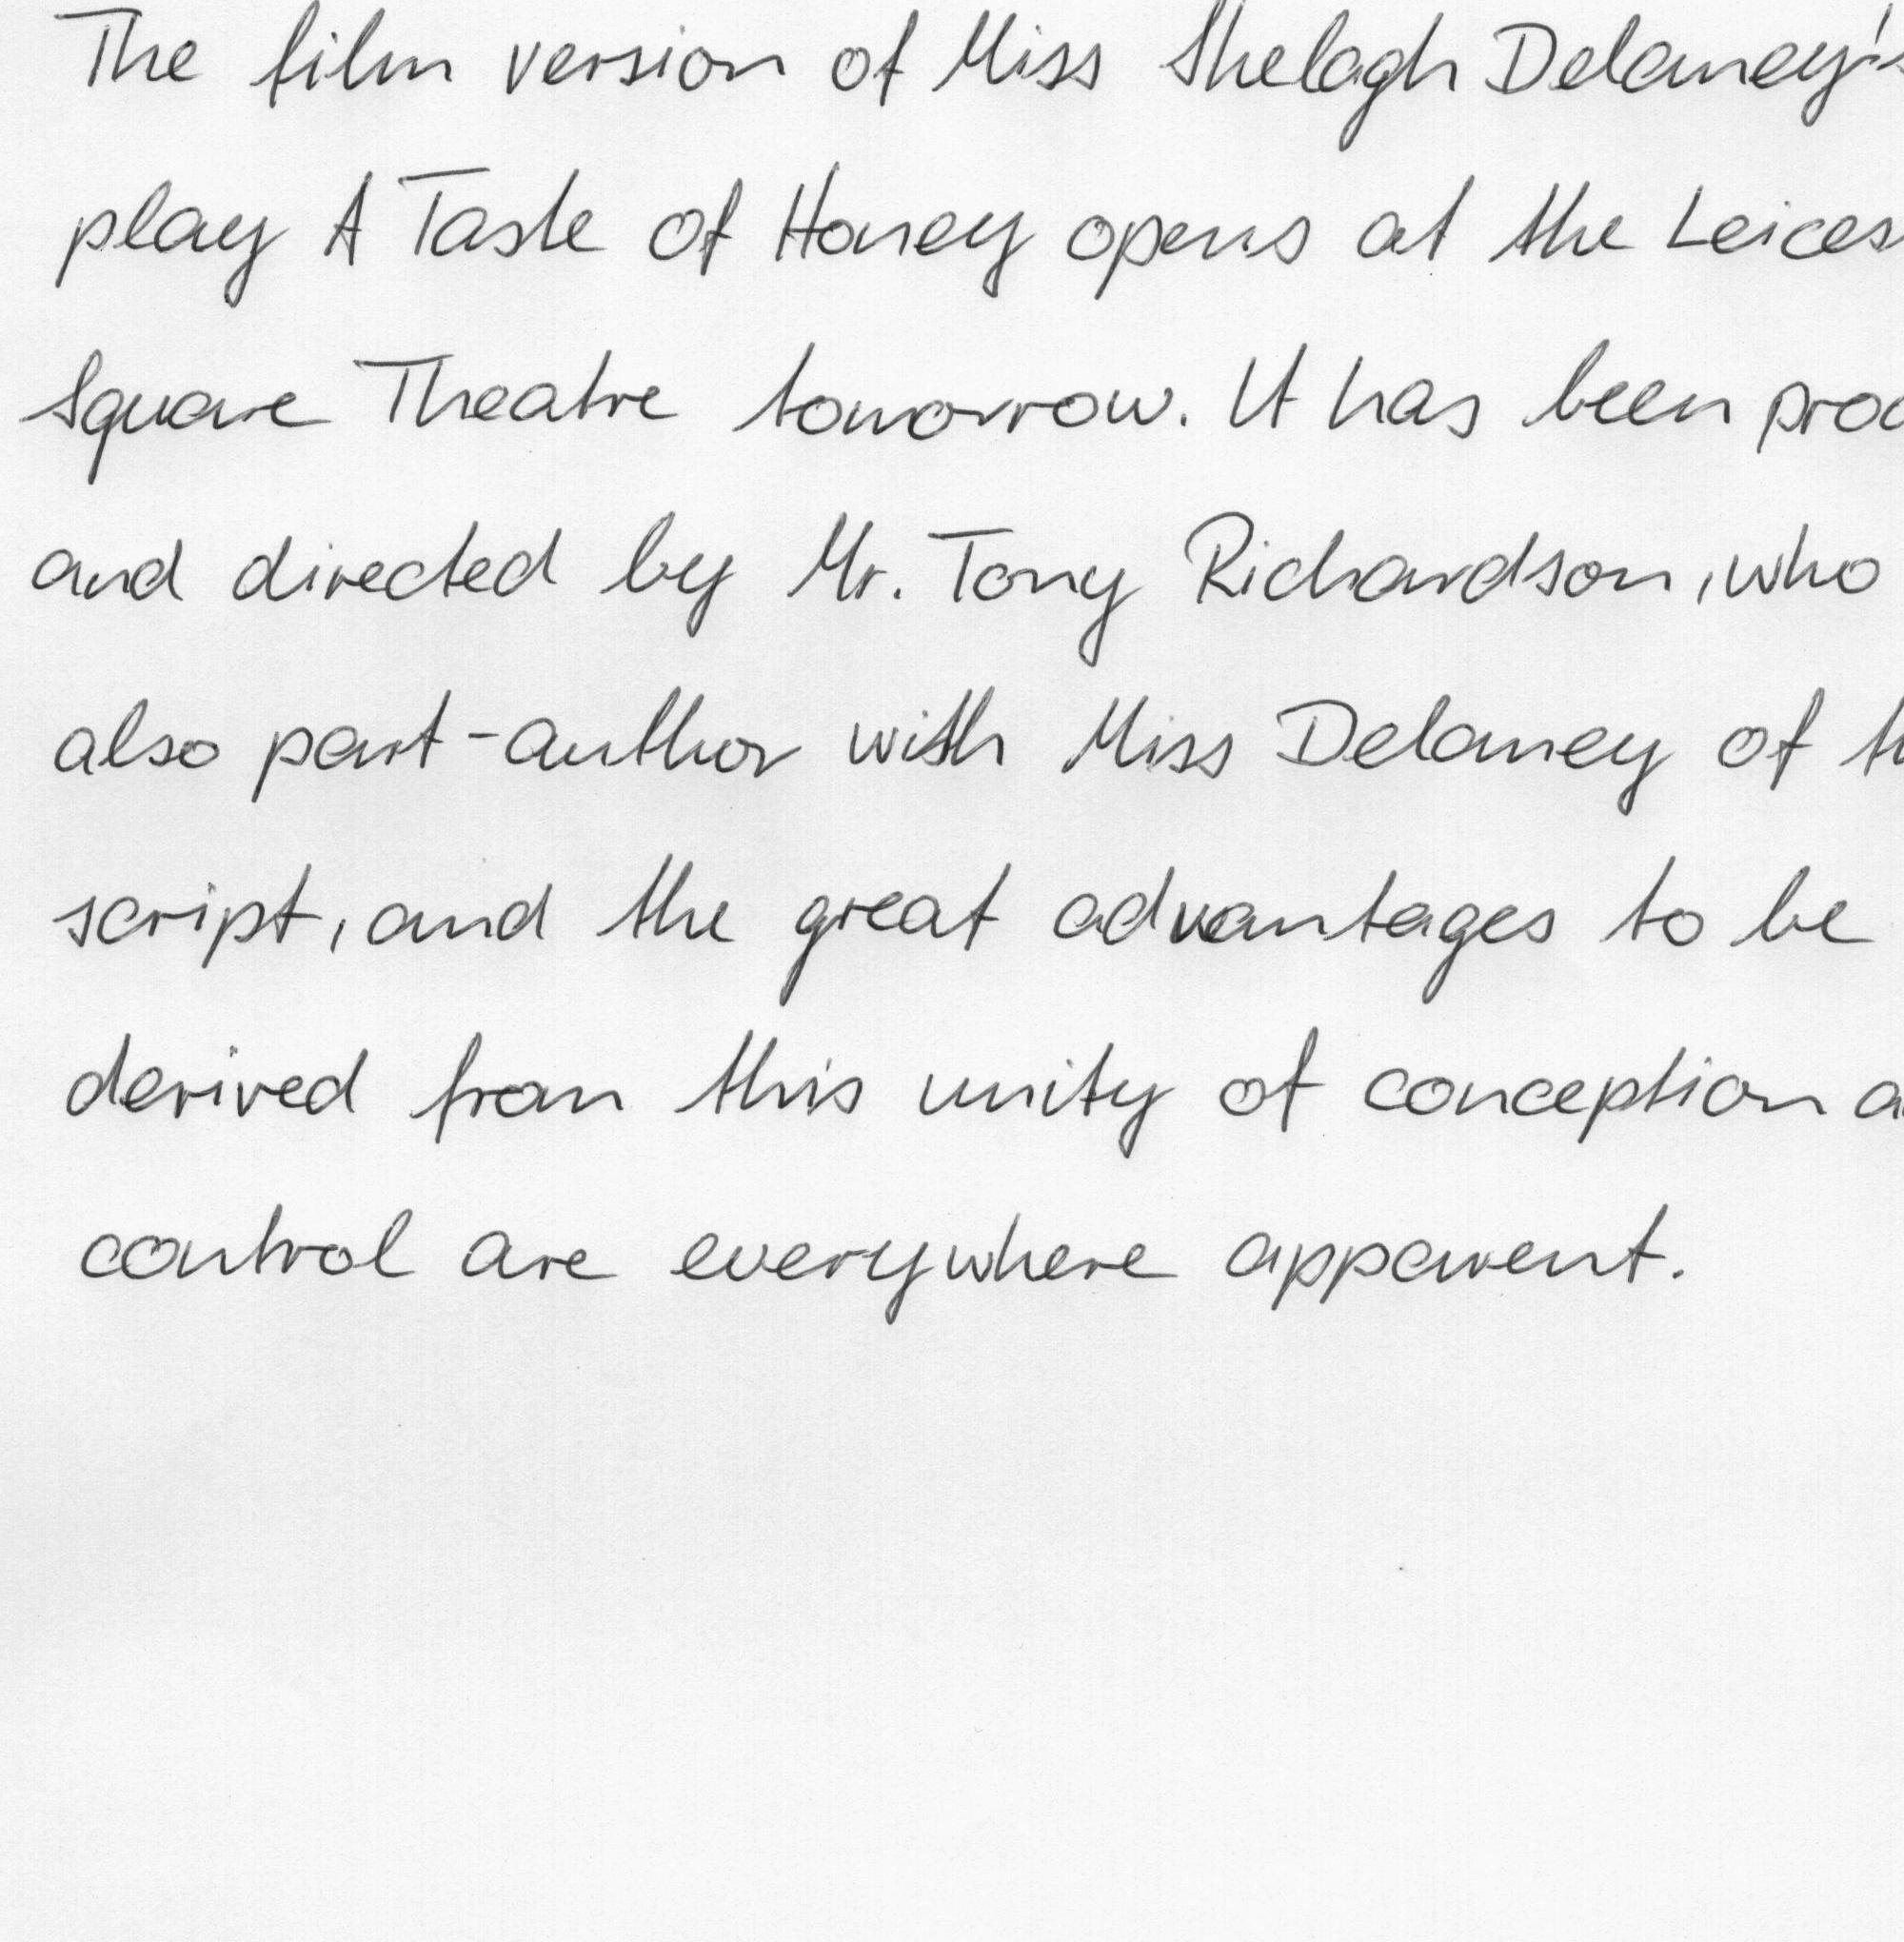 The film version of Miss Shelagh Delaney's
play A Taste of Honey opens at the Leices
Square Theatre tomorrow. It has been prod
and directed by Mr. Tony Richardson, who
also part-author with Miss Delaney of th
script, and the great advantages to be
derived from this unity of conception a
control are everywhere apparent.